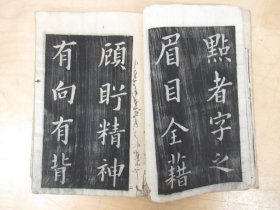 點者字之
眉目全藉
顧盻精神
有向有背